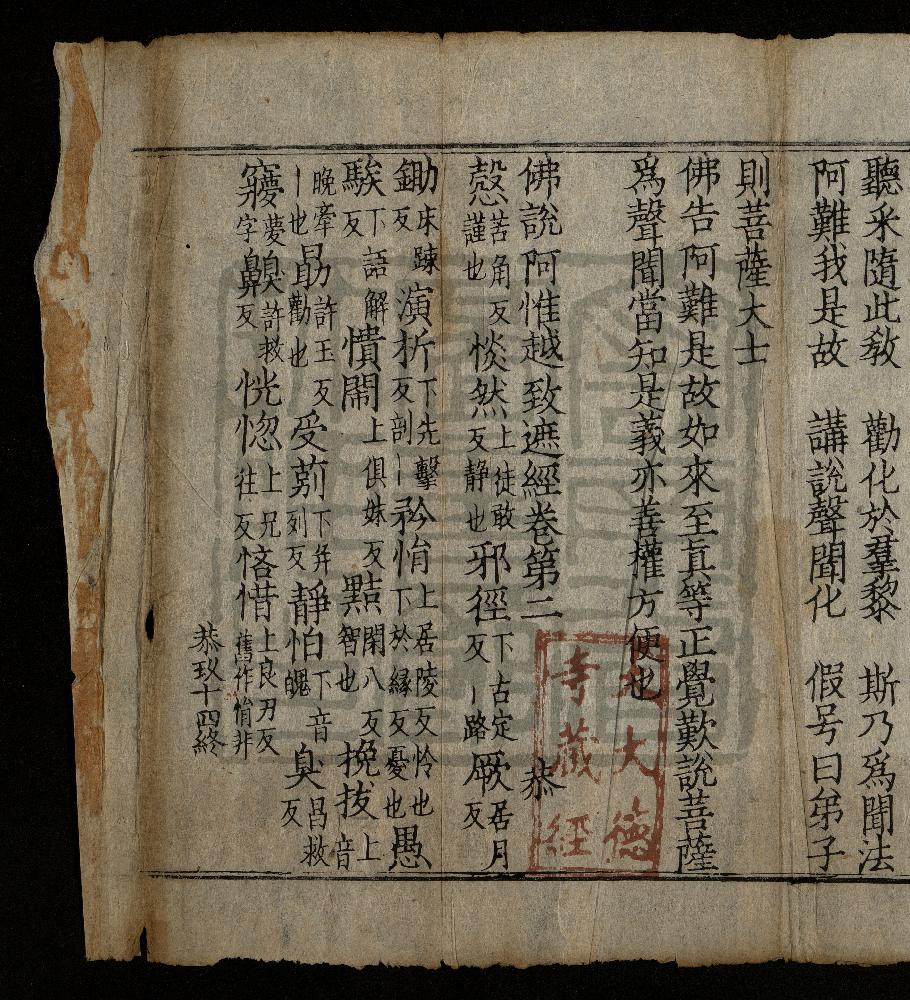 聽釆隨此敎　勸化於羣黎　斯乃爲聞法
阿難我是故　講說聲聞化　假号曰弟子
則菩薩大士
佛告阿難是故如來至真等正覺歎說菩薩
爲聲聞當知是義亦善權方便也
佛說阿惟越致遮經卷第二　恭
慤苦角反謹也惔然上徒敢反静也邪徑下古定反丨路厥居月反
鋤床踈反演析下先擊反剖丨矜悁上居陵反怜也下於緣反憂也愚
騃下語解反憒閙上俱妹反點閑八反智也挽拔上音
晚牽丨也勗許王反勸也受莂下幷列反靜怕下音魄臭昌救反
寱夢字鼻許救反恍惚上兄往反悋惜上良刃反舊作悋非
恭玖十四終
大德
寺藏經